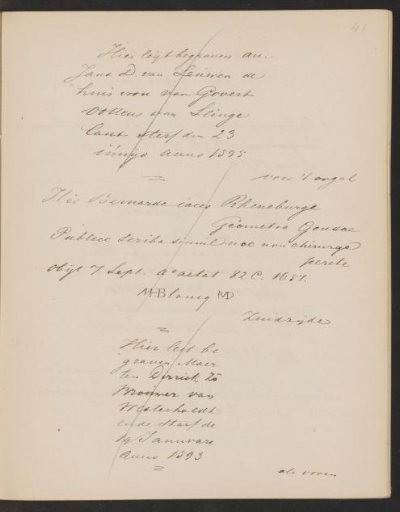 41
Hier leijt begraven au..
Jans D. van Leuwen de
huis vrou van Govert
van Slinge
lant sterf den 23
iunijo Anno 1595
voor 't orgel
Hic Bernarde iaces Rheneburge
Geometra Goudae
Publice scriba simul nec non chirurge
perite
obijt 7 Sept. Ao aetat 82 C. 1651.
Zuidzijde
Hier leit be
graven Maer
ten Dirrick Zo
Brouwer van
Westerholdt
ende starf de
19 Januvare
Anno 1593
als voren